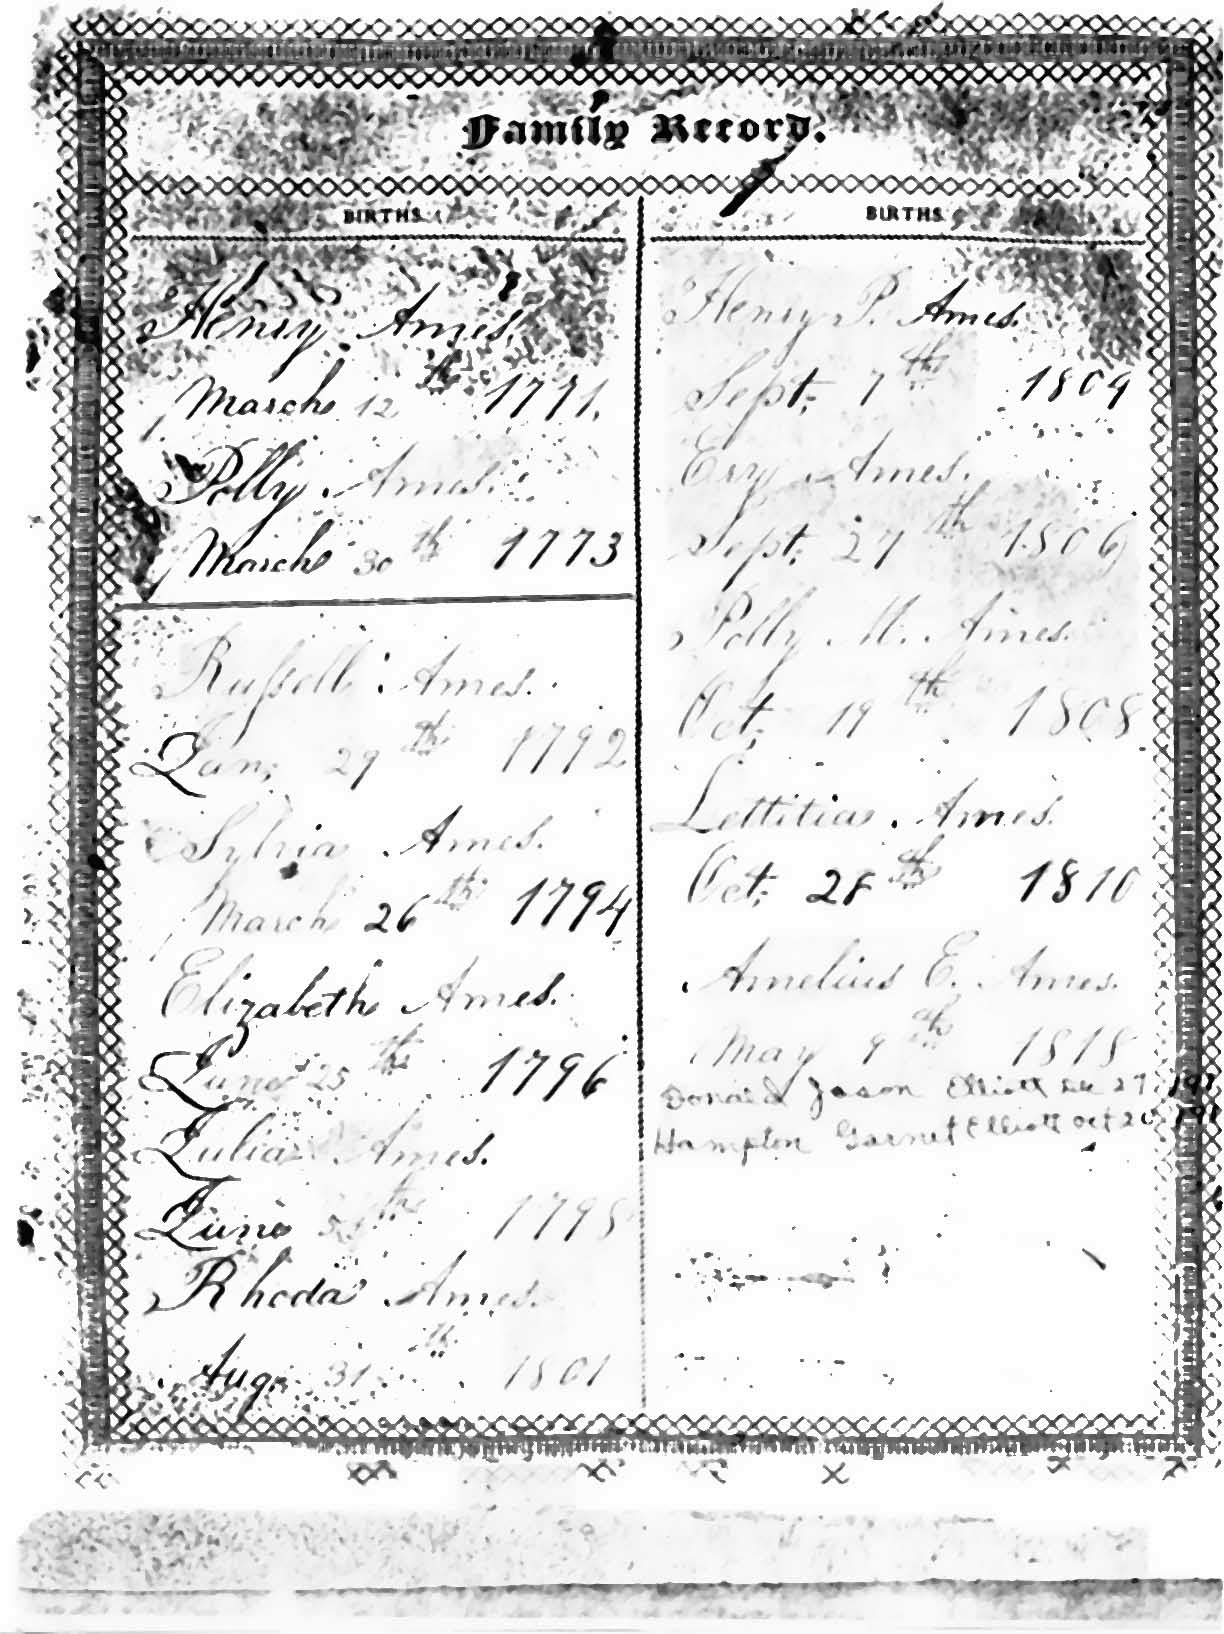 Family Record.
BIRTHS.
Henry Ames.
March 12th 1771.
Polly Ames.
March 30th 1773
Russell Ames.
Jan; 29th 1792
Sylvia Ames.
March 26th 1794
Elizabeth Ames.
June 25th 1796
Julia Ames.
June th 1798
Rhoda Ames.
Aug. 31th 1801
BIRTHS.
Henry P. Ames.
Sept; 7th 1809
Ery Ames.
Sept; 27th 1806
Polly M. Ames.
Oct; 19th 1808
Lettitia Ames.
Oct; 28th 1810
Amelius E. Ames.
May 9th 1818
Donald Jason Elliott Dec 27
Hampton Garnet Elliott Oct